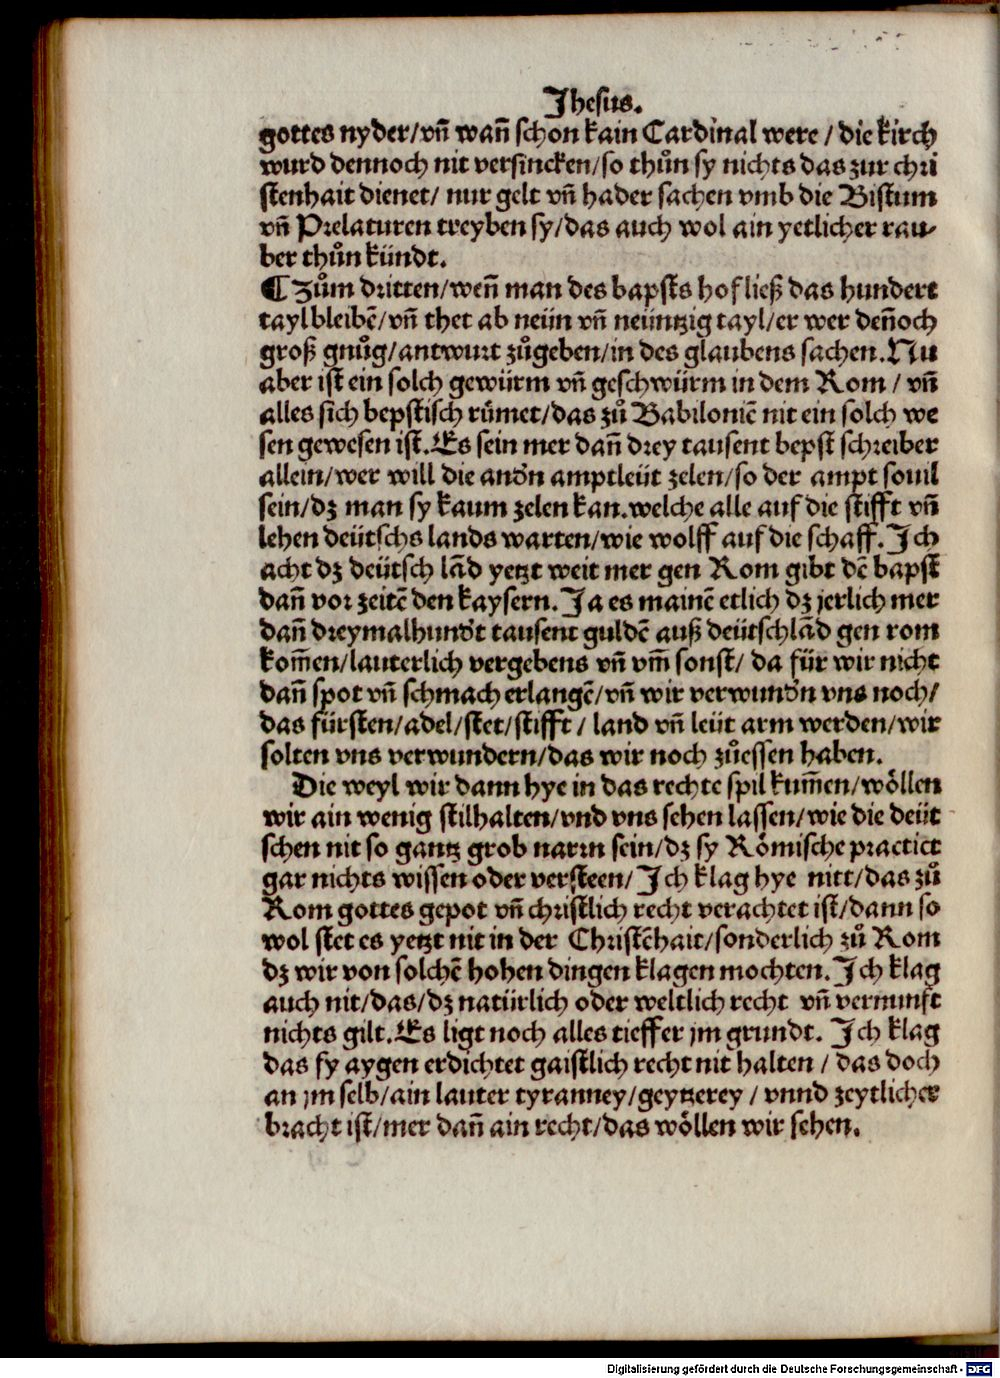 Jhesus.
gottes nyder/vn̄ wan̄ schon kain Cardinal were / die kirch
wurd dennoch nit versincken/so thůn sy nichts das zur chri
stenhait dienet/ nur gelt vn̄ hader sachen vmb die Bistum
vn̄ Prelaturen treyben sy/das auch wol ain yetlicher rau-
ber thůn kündt.
¶ Zům dritten/wen̄ man des bapsts hof ließ das hundert
tayl bleibē/vn̄ thet ab neün vn̄ neüntzig tayl/er wer den̄och
groß gnůg/antwurt zůgeben/in des glaubens sachen.Nu
aber ist ein solch gewürm vn̄ geschwürm in dem Rom / vn̄
alles sich bepstisch rümet/das zů Babiloniē nit ein solch we
sen gewesen ist.Es sein mer dan̄ drey tausent bepst schreiber
allein/wer will die andn amptleüt zelen/so der ampt souil
sein/dz man sy kaum zelen kan.welche alle auf die stifft vn̄
lehen deütschs lands warten/wie wolff auf die schaff. Ich
acht dz deütsch lād yetzt weit mer gen Rom gibt dē bapst
dan̄ vor zeitē den kaysern. Ja es mainē etlich dz jerlich mer
dan̄ dreymalhundt tausent guldē auß deütschlād gen rom
kom̄en/lauterlich vergebens vn̄ vm̄ sonst/ da für wir nicht
dan̄ spot vn̄ schmach erlangē/vn̄ wir verwundn vns noch/
das fürsten/adel/stet/stifft / land vn̄ leüt arm werden/wir
solten vns verwundern/das wir noch zůessen haben.
Die weyl wir dann hye in das rechte spil kum̄en/wöllen
wir ain wenig stilhalten/vnd vns sehen lassen/wie die deüt
schen nit so gantz grob narrn sein/dz sy Römische practict
gar nichts wissen oder versteen/ Ich klag hye nitt/das zů
Rom gottes gepot vn̄ christlich recht verachtet ist/dann so
wol stet es yetzt nit in der Christēhait/sonderlich zů Rom
dz wir von solchē hohen dingen klagen mochten. Ich klag
auch nit/das/dz natürlich oder weltlich recht vn̄ vernunft
nichts gilt.Es ligt noch alles tieffer jm grundt. Ich klag
das sy aygen erdichtet gaistlich recht nit halten / das doch
an jm selb/ain lauter tyranney/geytzerey / vnnd zeytlicher
bracht ist/mer dan̄ ain recht/das wöllen wir sehen.
Digitalisierung gefördert durch die Deutsche Forschungsgemeinschaft - DFG